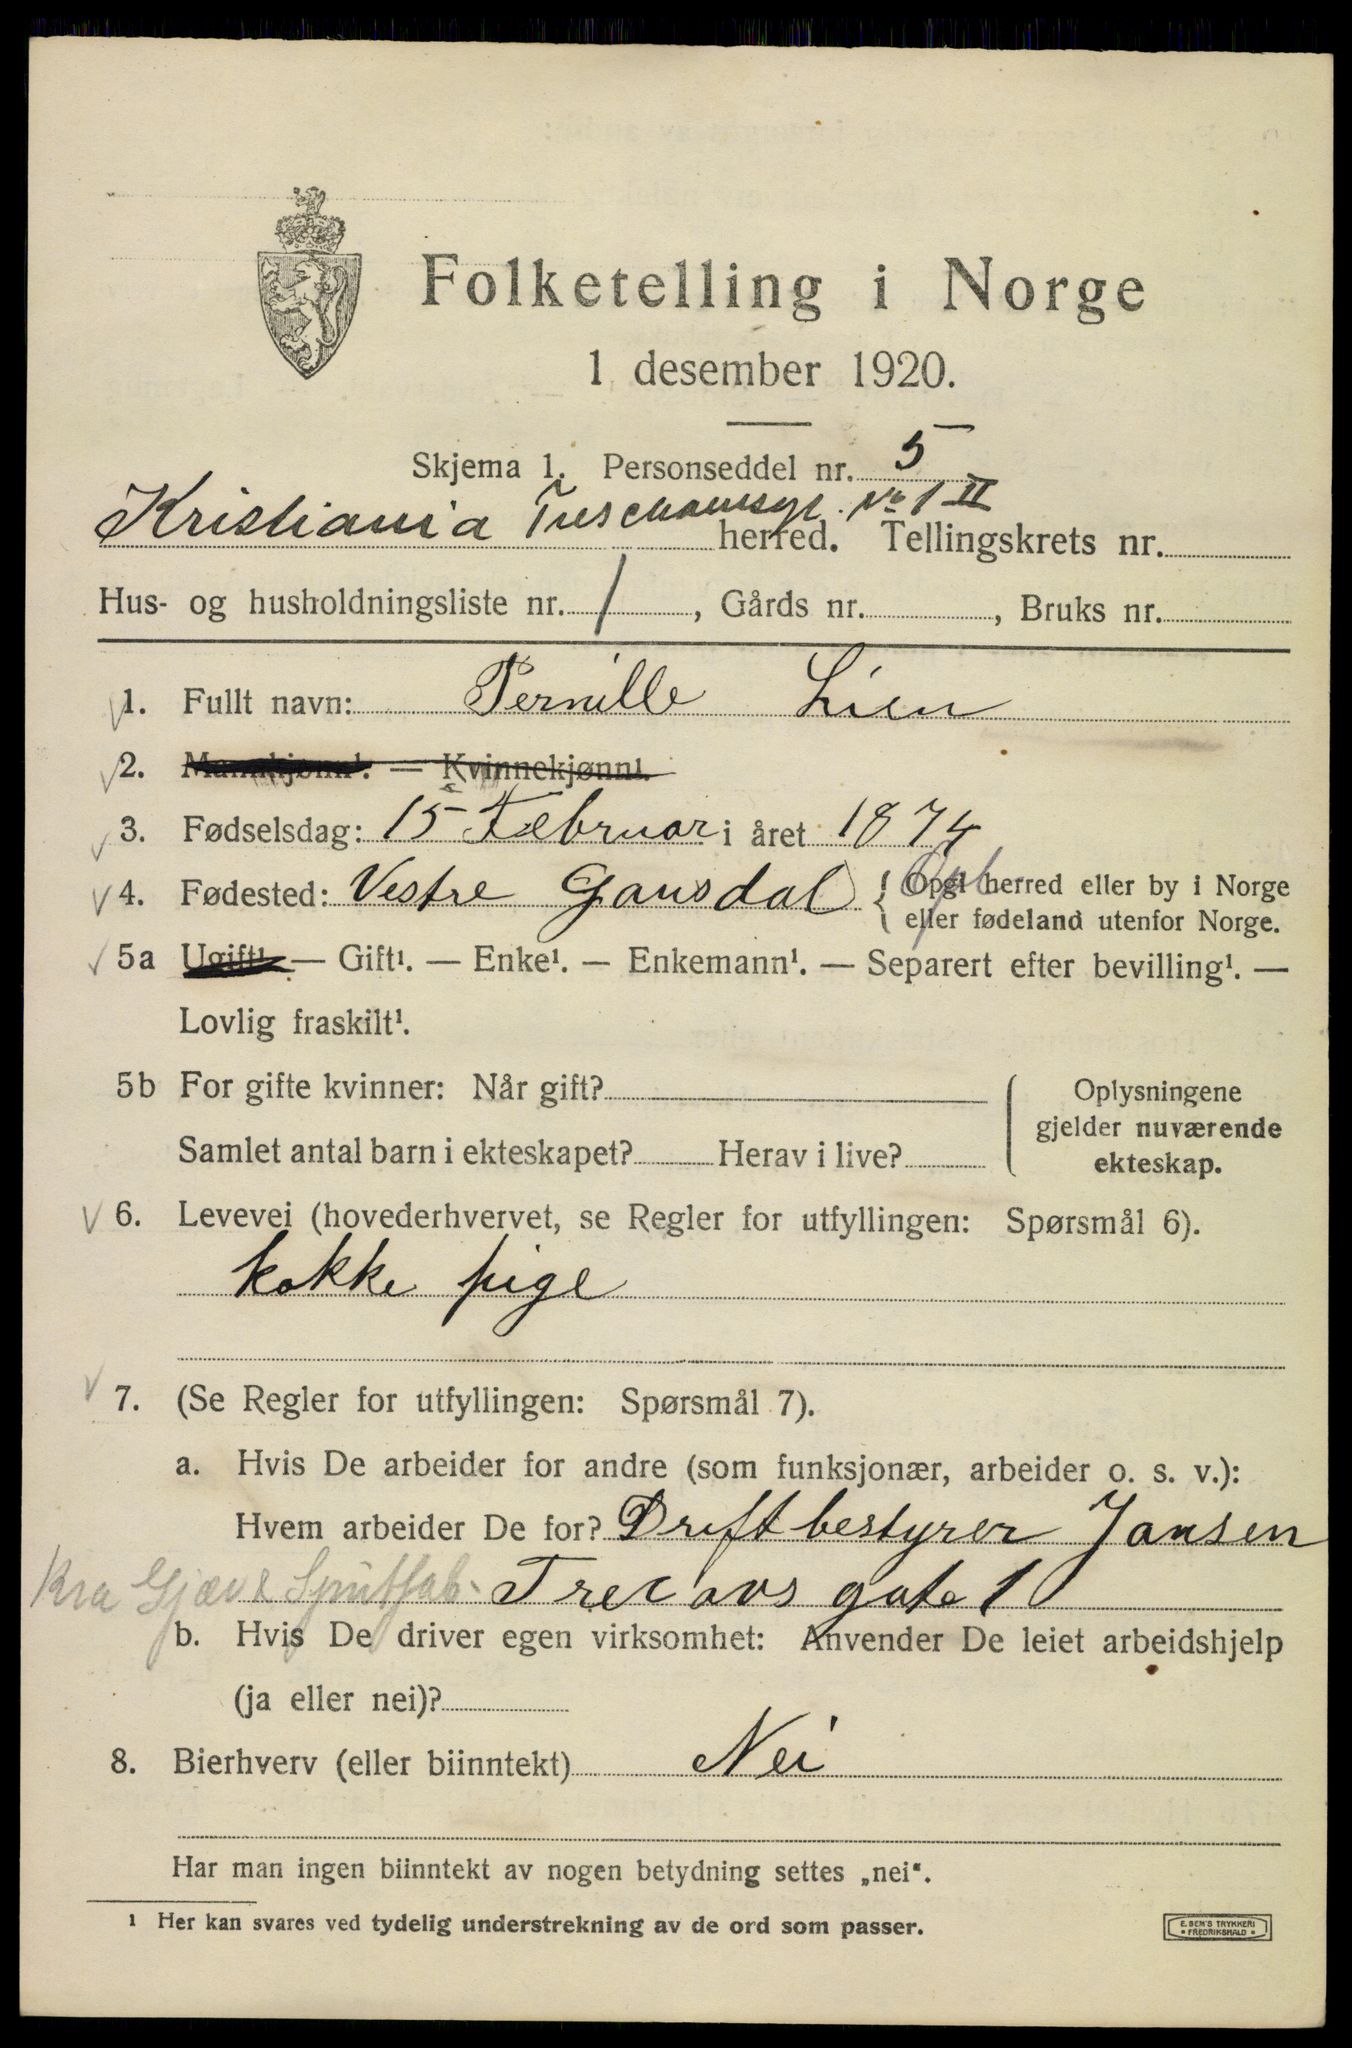 Folketelling i Norge
1 desember 1920.
Skjema 1. Personseddel nr. 5
Kristiania Treschowsgt. No 1 II
herred. Tellingskrets nr.
Hus- og husholdningsliste nr. 1, Gårds nr. , Bruks nr.
1. Fullt navn: Pernille Lien
2. Mannkjønn¹. — Kvinnekjønn¹.
3. Fødselsdag: 15 Februar i året 1874
4. Fødested: Vestre Gausdal { Opgi herred eller by i Norge
eller fødeland utenfor Norge.
5a Ugift¹. — Gift¹. — Enke¹. — Enkemann¹. — Separert efter bevilling¹. —
Lovlig fraskilt¹.
5b For gifte kvinner: Når gift?
Oplysningene
gjelder nuværende
ekteskap.
Samlet antal barn i ekteskapet? Herav i live?
6. Levevei (hovederhvervet, se Regler for utfyllingen: Spørsmål 6).
kokke pige
7. (Se Regler for utfyllingen: Spørsmål 7).
a. Hvis De arbeider for andre (som funksjonær, arbeider o. s. v.):
Hvem arbeider De for? Driftbestyrer Jansen
Kra Gjær & Spritfab. gate 1
b. Hvis De driver egen virksomhet: Anvender De leiet arbeidshjelp
(ja eller nei)?
8. Bierhverv (eller biinntekt) Nei
Har man ingen biinntekt av nogen betydning settes „nei“.
1 Her kan svares ved tydelig understrekning av de ord som passer.
E. SEM'S TRYKKERI
• FREDRIKSHALD •